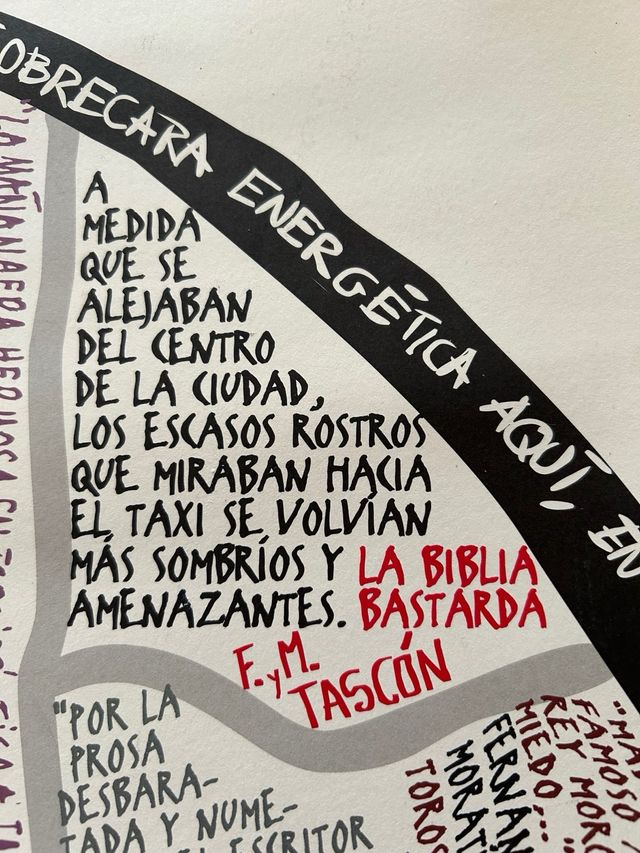 OBRECARA ENERGÉTICA AQUÍ, EN
A
MEDIDA
QUE SE
ALEJABAN
DEL CENTRO
DE LA CIUDAD,
LOS ESCASOS ROSTROS
QUE MIRABAN HACIA
EL TAXI SE VOLVÍAN
MÁS SOMBRÍOS Y LA BIBLIA
AMENAZANTES. BASTARDA
F. y M.
TASCÓN
"LA MAÑANA ERA HERMOSA
"POR LA
PROSA
DESBARA-
TADA Y NUME-
EL ESCRITOR
"MA
FAMOSO
REY MORO
MIEDO,...
FERNÁN
MORAT
TOROS